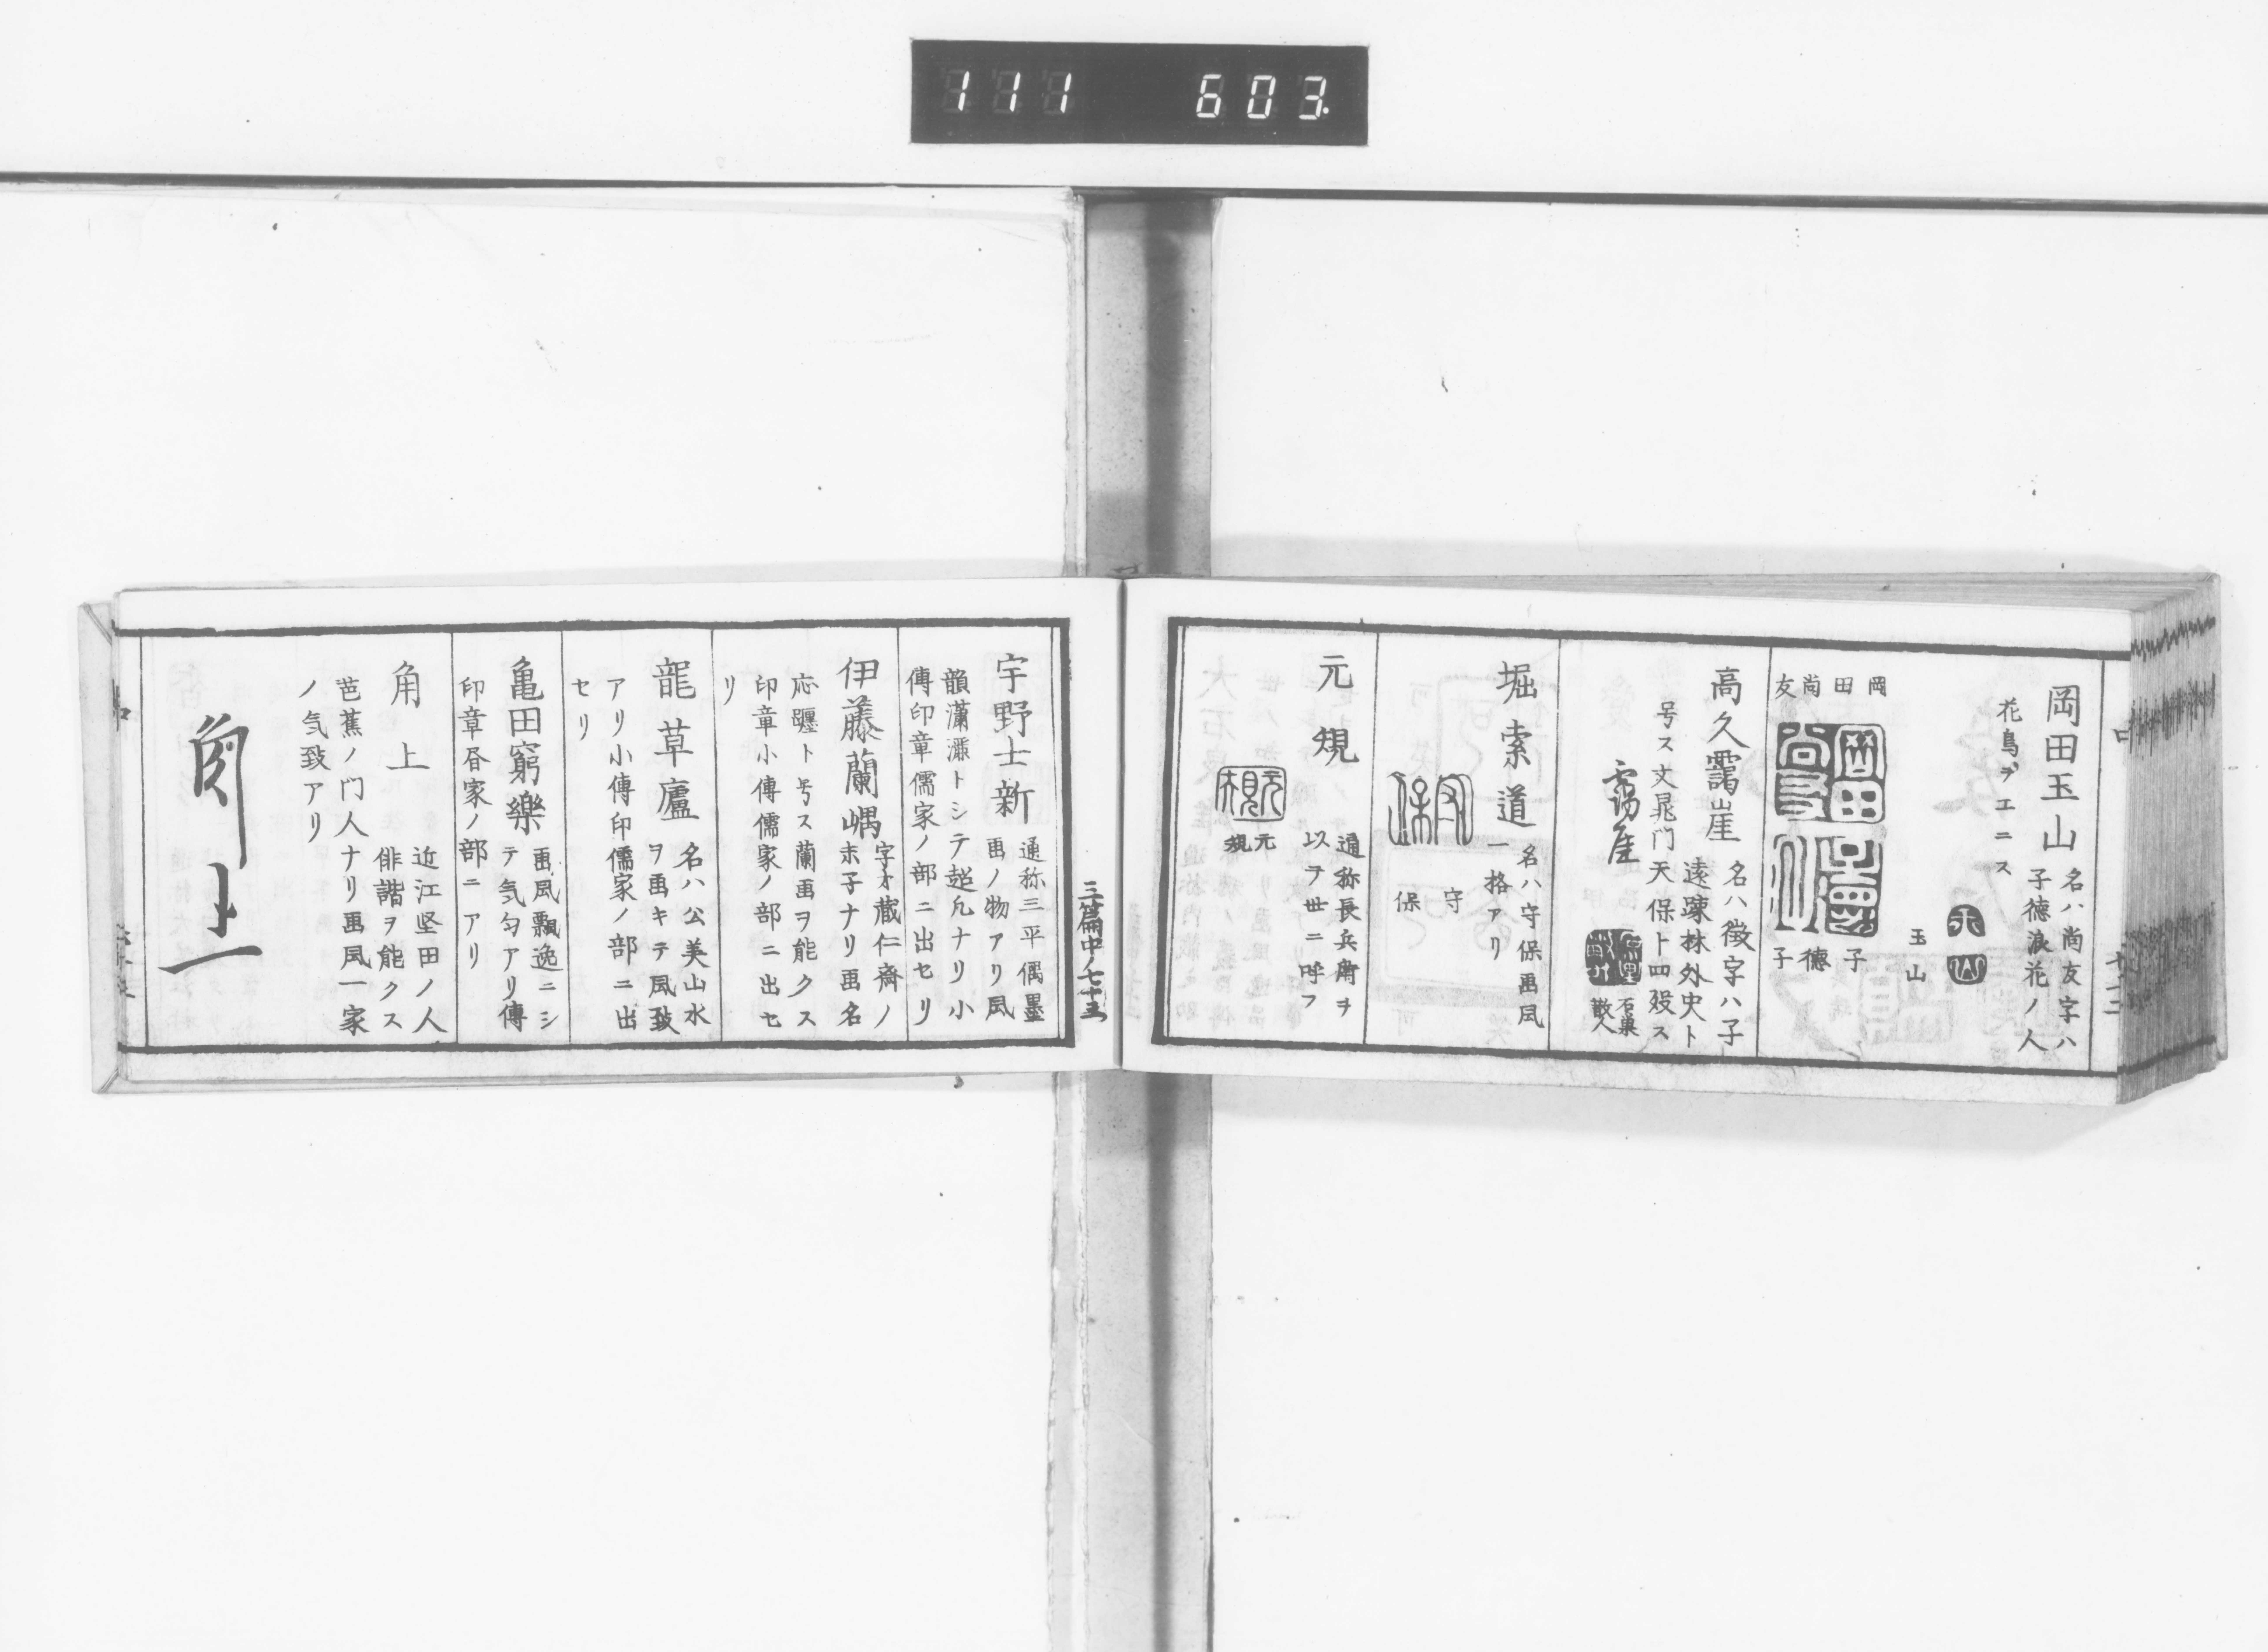 111 603.
岡田玉山
名ハ尚友字ハ
子德浪花ノ人
花鳥ヲエニス
玉山
岡田尚友
子德子
高久靄崖
名ハ徴字ハ子
遠疎林外史ト
号ス文晁門天保ト四歿ス
靄崖
石巣
散人
堀索道
名ハ守保画風
一格アリ
守
保
元規
通称長兵衛ヲ
以ヲ世ニ呼フ
元
規
三篇中ノ七十五
宇野士新
通称三平偶墨
画ノ物アリ風
韻瀟灑トシテ超凡ナリ小
傳印章儒家ノ部ニ出セリ
伊藤蘭嵎
字才蔵仁齋ノ
末子ナリ画名
応躔ト号ス蘭画ヲ能クス
印章小傳儒家ノ部ニ出セ
リ
龍草廬
名ハ公美山水
ヲ画キテ風致
アリ小傳印儒家ノ部ニ出
セリ
亀田窮樂
画風飄逸ニシ
テ気匂アリ傳
印章昏家ノ部ニアリ
角上
近江堅田ノ人
俳諧ヲ能クス
芭蕉ノ门人ナリ画風一家
ノ気致アリ
角上